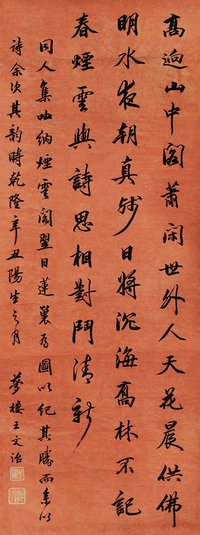 高迥山中閣蕭閑世外人天花晨供佛
明水夜朝真殘日將沉海喬林不記
春煙雲與詩思相對鬥清新
同人集咏納煙雲閣翌日蓮巢為圖以紀其勝而系以
詩余次其韻時乾隆辛丑陽生之月 夢樓王文治